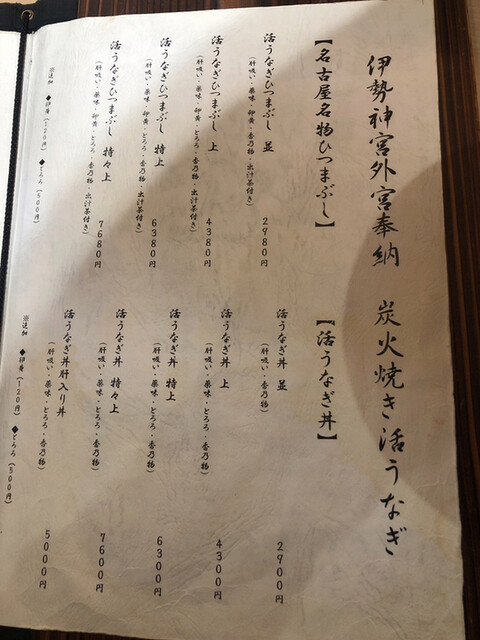 伊勢神宮外宮奉納　炭火焼き活うなぎ
【名古屋名物ひつまぶし】
活うなぎひつまぶし 並 2980円
(肝吸い・薬味・卵黄・とろろ・香乃物・出汁茶付き)
活うなぎひつまぶし 上 4380円
(肝吸い・薬味・卵黄・とろろ・香乃物・出汁茶付き)
活うなぎひつまぶし 特上 6380円
(肝吸い・薬味・卵黄・とろろ・香乃物・出汁茶付き)
活うなぎひつまぶし 特々上 7680円
(肝吸い・薬味・卵黄・とろろ・香乃物・出汁茶付き)
※追加 ◆卵黄(120円) ◆とろろ(500円)
【活うなぎ丼】
活うなぎ丼 並 2900円
(肝吸い・香乃物)
活うなぎ丼 上 4300円
(肝吸い・薬味・とろろ・香乃物)
活うなぎ丼 特上 6300円
(肝吸い・薬味・とろろ・香乃物)
活うなぎ丼 特々上 7600円
(肝吸い・薬味・とろろ・香乃物)
活うなぎ丼肝入り丼 5000円
(肝吸い・薬味・とろろ・香乃物)
※追加 ◆卵黄(120円) ◆とろろ(500円)